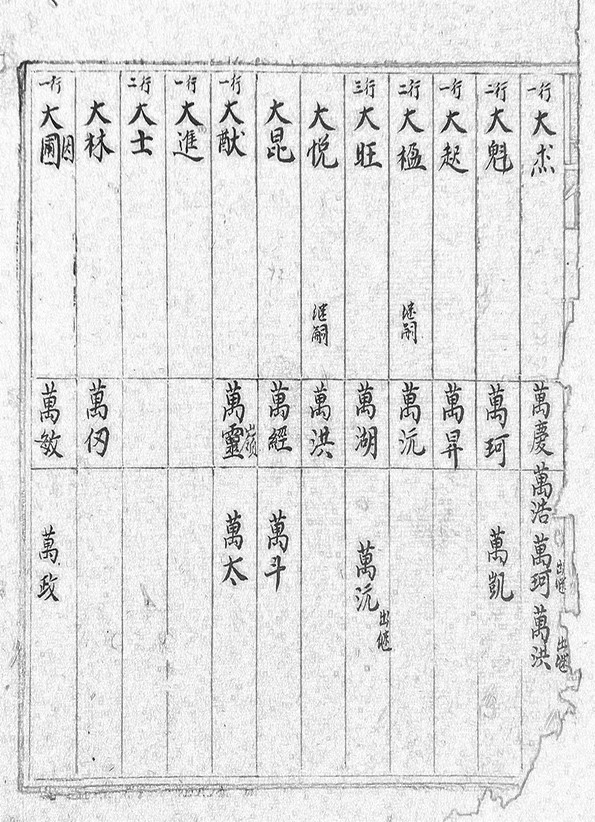 一行 大杰 萬慶 萬浩 萬珂 出继 萬洪 出继
二行 大魁 萬珂 萬凱
一行 大起 萬昇
二行 大楹 继嗣 萬沅
三行 大旺 萬湖 萬沅 出继
大悦 继嗣 萬洪
大昆 萬經 萬斗
一行 大猷 萬靈 嶺 萬太
一行 大進
二行 大士
大林 萬仞
一行 大圃 萬敏 萬政